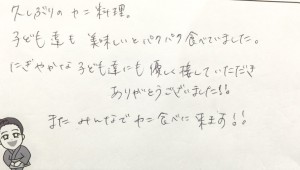 久しぶりのカニ料理。
子ども達も美味しいとパクパク食べていました。
にぎやかな子ども達にも優しく接していただき
ありがとうございました!!
またみんなでカニ食べに来ます!!